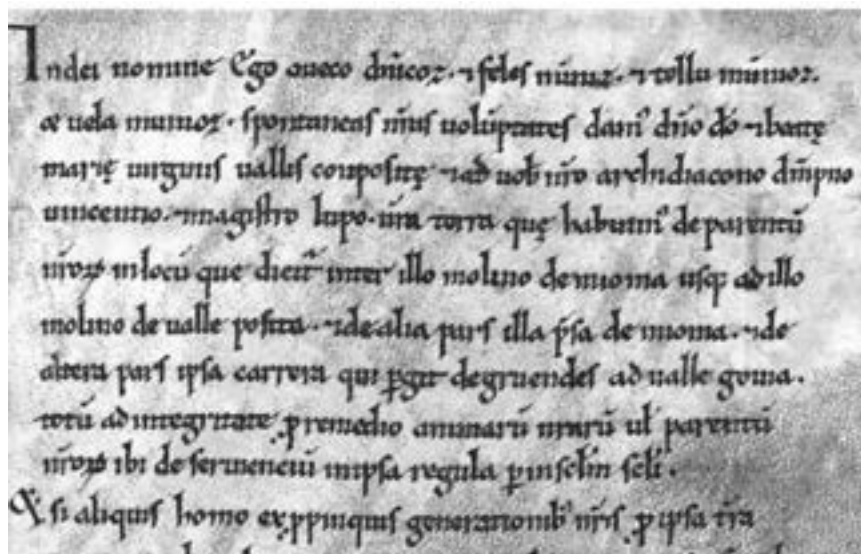 In dei nomine Ego aueco dn̄icoz. ⁊ feles nūnuz. ⁊ tellu mūnioz.
& uela munioz. spontaneas nr̄as uoluptates dam᾽ dn̄o dō ⁊ ibatę
marię uirginis uallis conpositę ⁊ ad uob nr̄o archidiacono dm̄pno
uincentio. ⁊ magistro lupo. nr̄a terra quę habuim᾽ de parentū
nr̄oꝝ in locū que dicit̄ inter illo molino de nuoma usqꝫ ad illo
molino de ualle posita. ⁊ de alia pars illa p̄sa de nuoma. ⁊ de
altera pars ipsa carrera qui ꝑgit de gruendes ad ualle goma.
totū ad integritate ꝓ remedio animarū nrarū ul̄ parentū
nr̄oꝝ ibi de seruenciū in ipsa regula ꝑ in sc̄lm sc̄li.
si aliquis homo ex ꝓpinquis generationib᾽ nr̄is ꝓ ipsa tr̄a